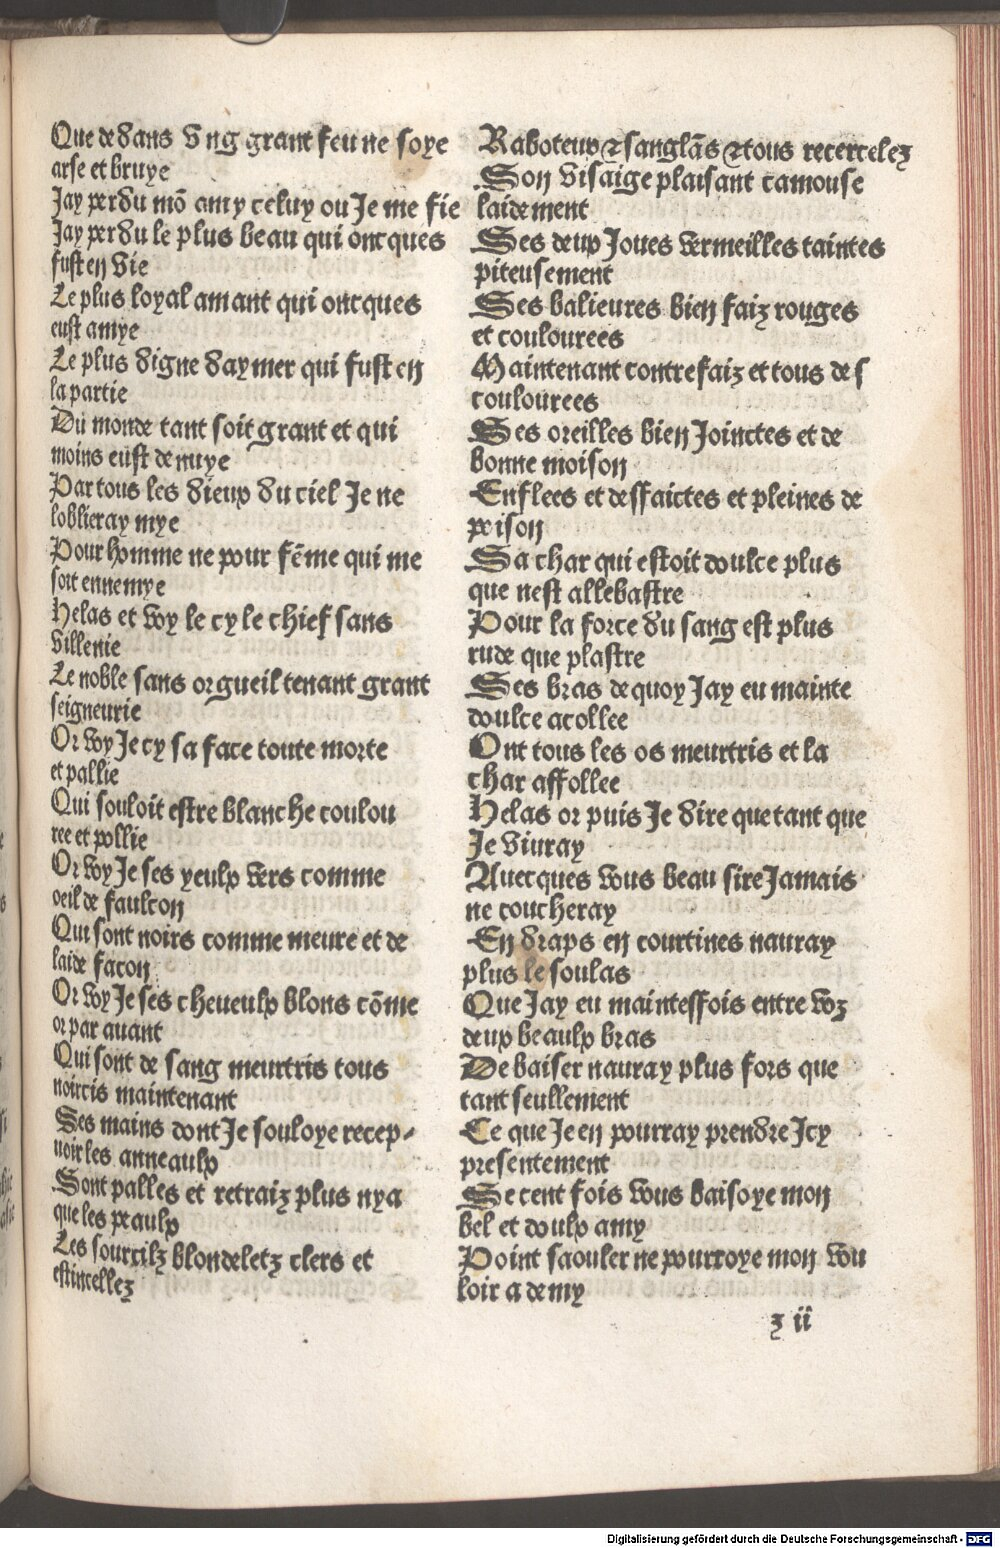 Que dedans vng grant feu ne soye
arse et bruye
Jay perdu mō amy celuy ou Je me fie
Jay perdu le plus beau qui oncques
fust en vie
Le plus loyal amant qui oncques
eust amye
Le plus digne daymer qui fust en
la partie
Du monde tant soit grant et qui
moins eust denuye
Par tous les dieux du ciel Je ne
loblieray mye
Pour homme ne pour fēme qui me
soit ennemye
Helas et voy le cy le chief sans
villenie
Le noble sans orgueil tenant grant
seigneurie
Or voy Je cy sa face toute morte
et pallie
Qui souloit estre blanche coulou
ree et pollie
Or voy Je ses yeulx vers comme
oeil de faulcon
Qui sont noirs comme meure et de
laide facon
Or voy Je ses cheueulx blons cōme
or par auant
Qui sont de sang meurtris tous
noircis maintenant
Ses mains dont Je souloye recep-
uoir les anneaulx
Sont palles et retraiz plus nya
que les peaulx
Les sourcilz blondeletz clers et
estincellez
Raboteux & sanglās & tous recercelez
Son visaige plaisant camouse
laidement
Ses deux Joues vermeilles taintes
piteusement
Ses balieures bien faiz rouges
et coulourees
Maintenant contrefaiz et tous des
coulourees
Ses oreilles bien Joinctes et de
bonne moison
Enflees et deffaictes et pleines de
poison
Sa char qui estoit doulce plus
que nest allebastre
Pour la force du sang est plus
rude que plastre
Ses bras dequoy Jay eu mainte
doulce acollee
Ont tous les os meurtris et la
char affollee
Helas or puis Je dire que tant que
Je viuray
Auecques vous beau sire Jamais
ne coucheray
En draps en courtines nauray
plus le soulas
Que Jay eu maintessois entre voz
deux beaulx bras
De baiser nauray plus fors que
tant seullement
Ce que Je en pourray prendre Jcy
presentement
Se cent fois vous baisoye mon
bel et doulx amy
Point saouler ne pourroye mon vou
loir a demy
z ii
Digitalisierung gefördert durch die Deutsche Forschungsgemeinschaft - DFG